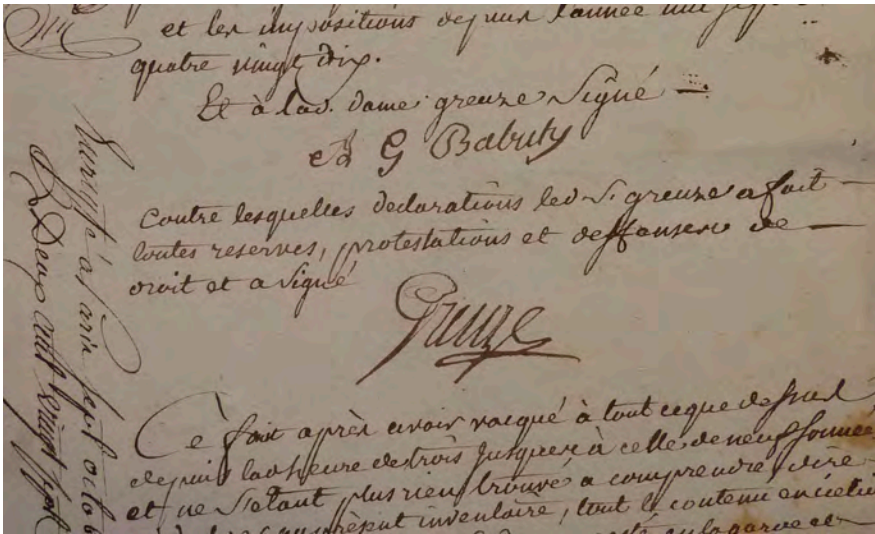 et les impositions depuis l'annee mil sept
quatre vingt dix.
Et à lad. dame greuze Signé
A G Babuty
Contre lesquelles declarations led. S. greuze a fait
toutes reserves, protestations et deffenses de
droit et a Signé
Greuze
Ce fait après avoir vacqué à tout ceque dessus
depuis lad heure de trois jusques à celle de neuf sonnée
et ne s'etant plus rien trouvé a comprendre dire
inventaire, tout le contenu en icelui
en la garde et